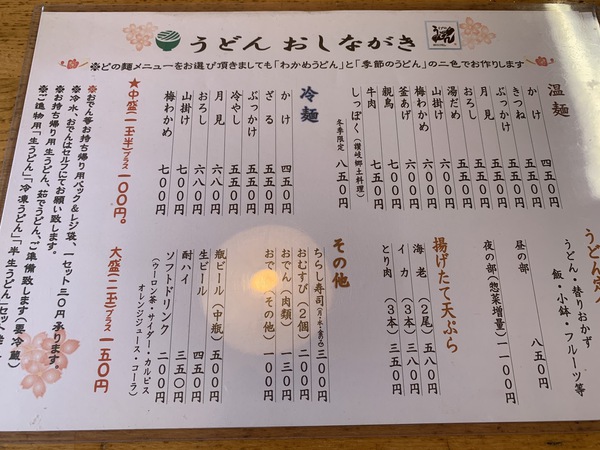 うどん おしながき
※どの麺メニューをお選び頂きましても「わかめうどん」と「季節のうどん」の二色でお作りします
温麺
かけ 四五〇円
きつね 五五〇円
ぶっかけ 五五〇円
月見 五五〇円
おろし
湯だめ
山掛け
梅わかめ
釜あげ
親鳥
牛肉 七五〇円
しっぽく(讃岐郷土料理)
冬季限定 八五〇円
冷麺
かけ 四五〇円
ざる 五五〇円
ぶっかけ 五五〇円
冷やし 五五〇円
月見 六八〇円
おろし 六八〇円
山掛け 七〇〇円
梅わかめ 七〇〇円
★中盛(一玉半)プラス一〇〇円。
大盛(二玉)プラス一五〇円
うどん・替りおかず
飯・小鉢・フルーツ等
昼の部 八五〇円
夜の部(惣菜増量) 一〇〇円
揚げたて天ぷら
海老(2尾) 五五〇円
イカ(3本) 三八〇円
とり肉(3本) 三五〇円
その他
ちらし寿司 三〇〇円
おむすび(2個) 二〇〇円
おでん(肉類) 一三〇円
おでん(その他) 一〇〇円
瓶ビール(中瓶) 五〇〇円
生ビール 四五〇円
酎ハイ 三五〇円
ソフトドリンク 二〇〇円
(ウーロン茶・サイダー・カルピス
オレンジジュース・コーラ)
※おでん等お持ち帰り用パック&レジ袋、一セット三〇円承ります。
※冷水、おでんはセルフにてお願い致します。
※お持ち帰り用生うどん、茹でうどん、ご準備致します(要冷蔵)
※ご進物用「生うどん」「冷凍うどん」「半生うどん」セット